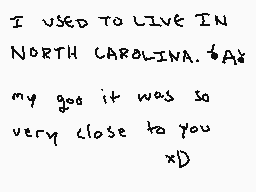 I USED TO LIVE IN
NORTH CAROLINA. •A•
my goo it was so
very close to you
xD